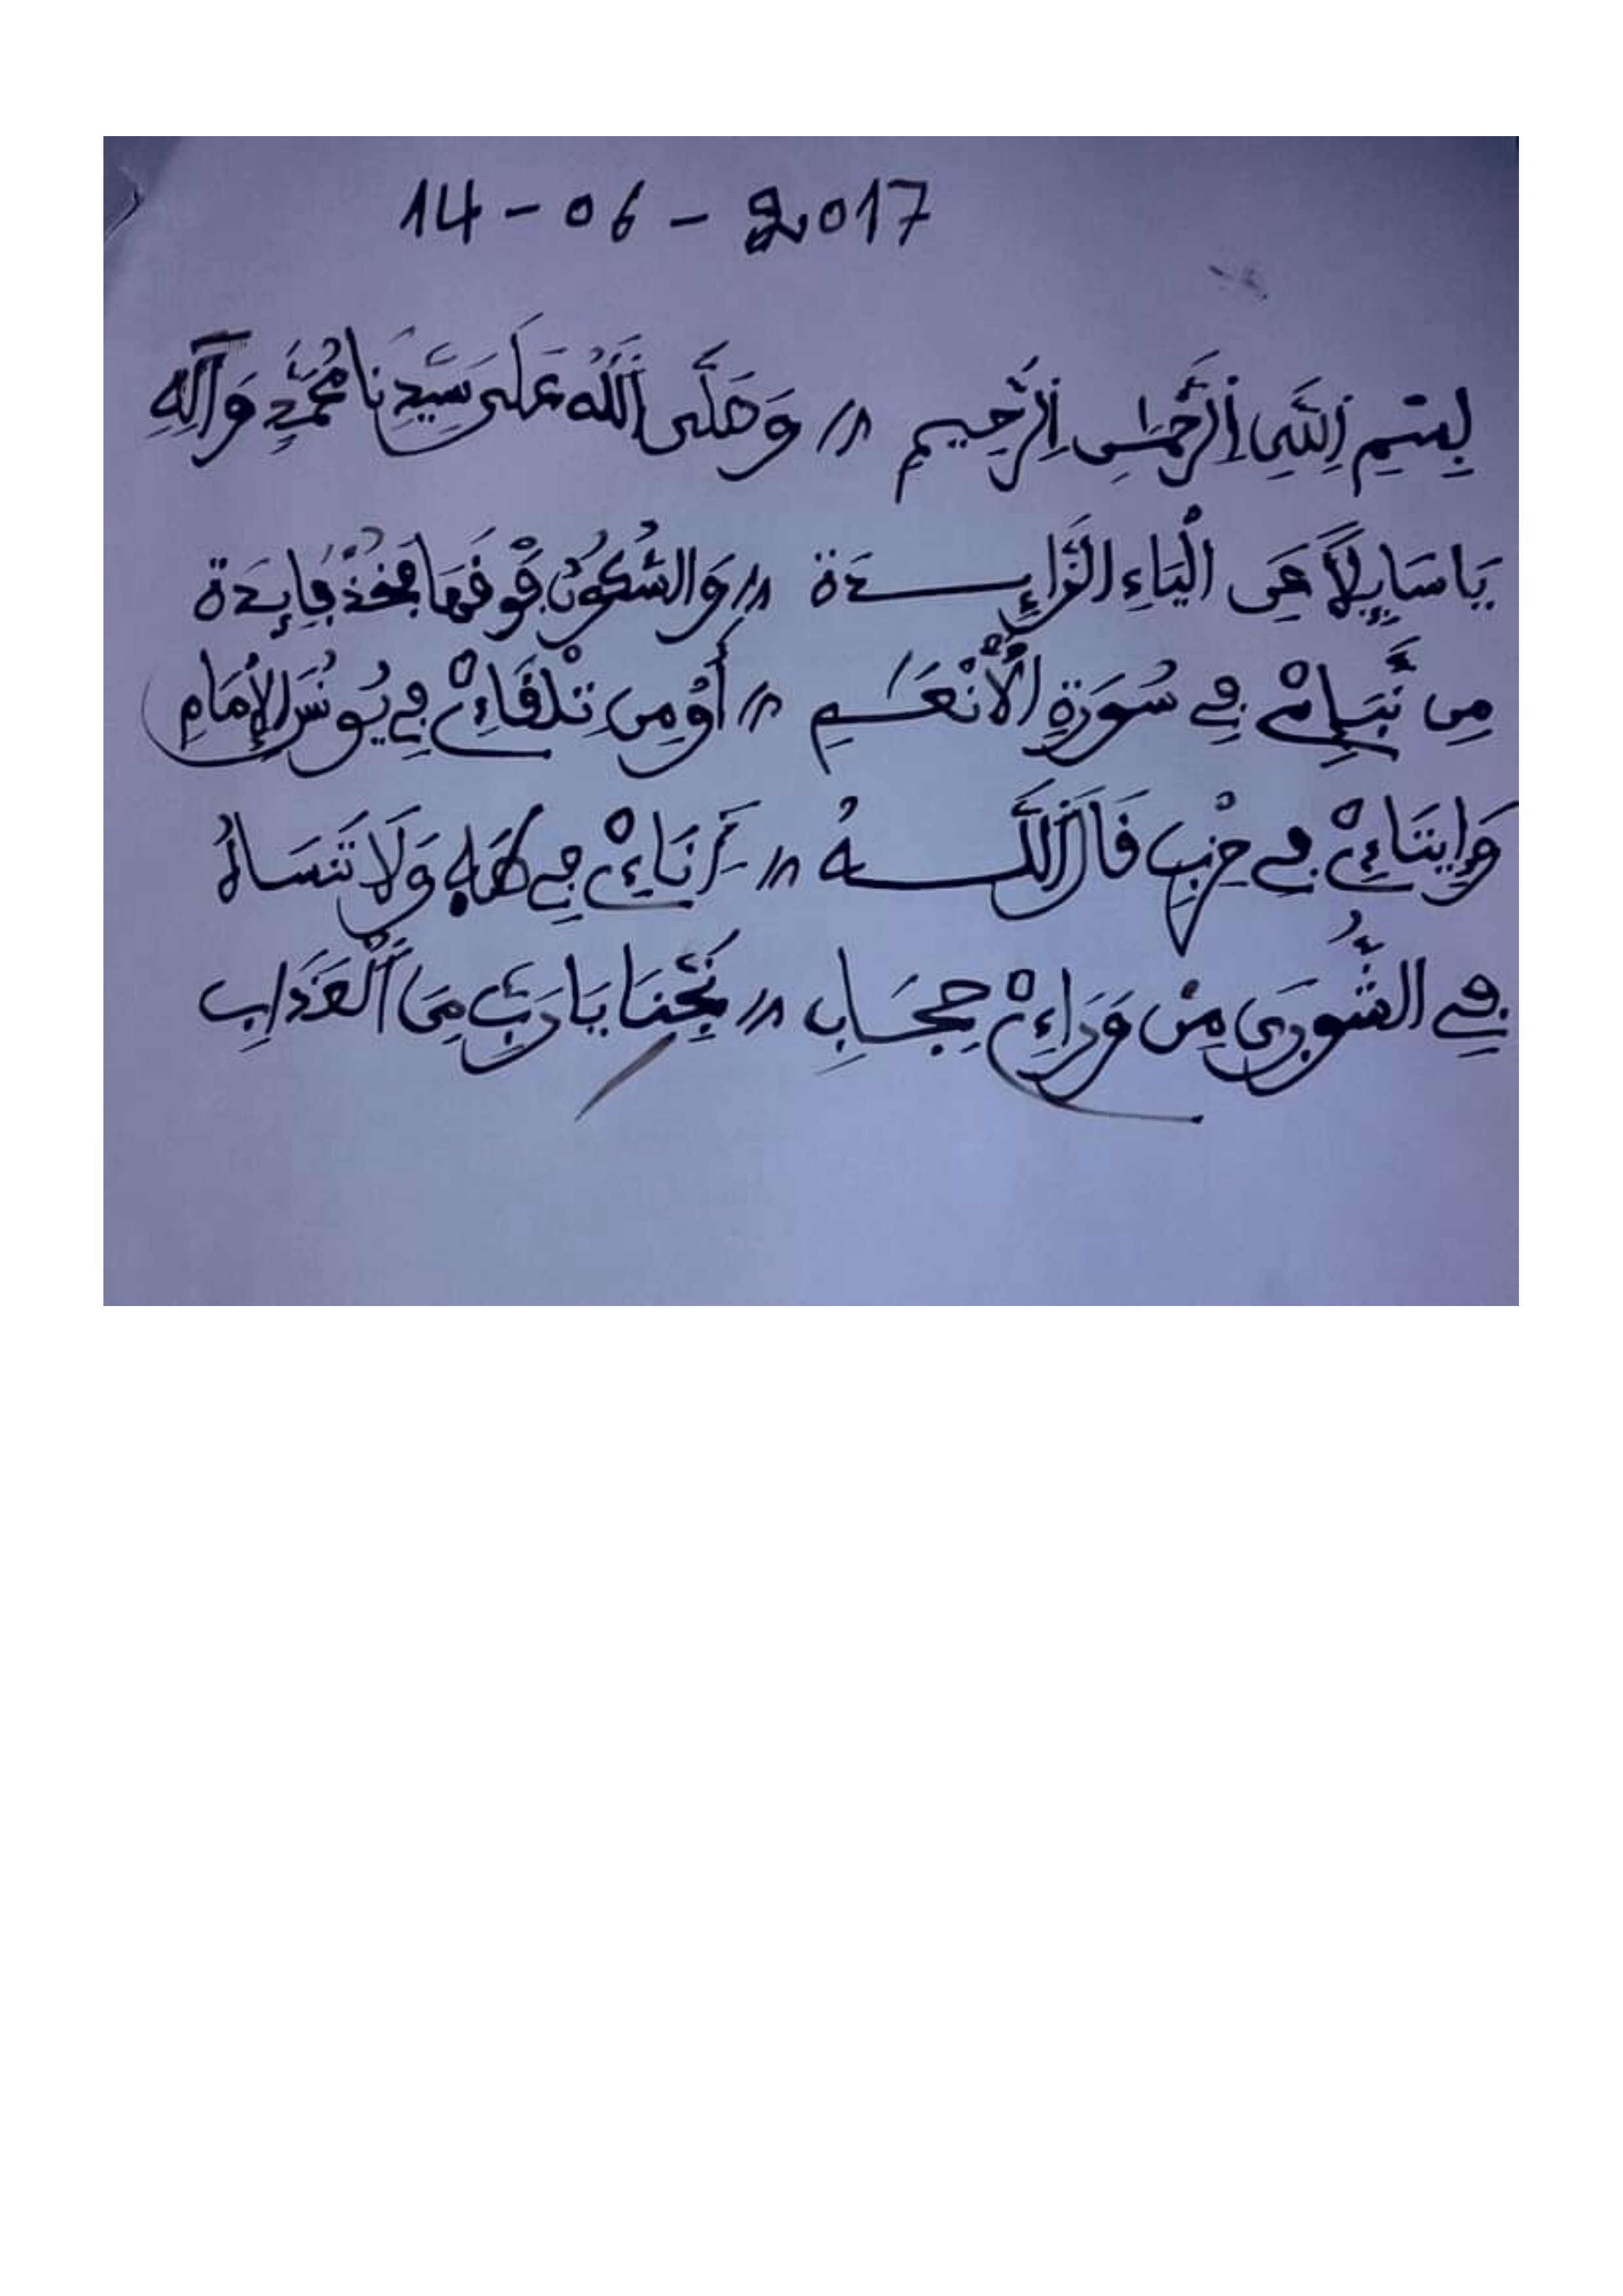 14-06-2017
بِسْمِ اِللَّهِ اِلرَّحْمَٰنِ اِلرَّحِيمِ // وَصَلَّى اَللَّهُ عَلَى سَيِّدِنَا مُحَمَّدٍ وَآلِهِ
يَا سَايِلاً عَنِ الْيَاءِ الزَّايِدَة // وَالسُّكُونُ فَوْقَهَا فَخُذْ فَايِدَة
مِن نَّبَإِىْ فِي سُورَةِ الْأَنْعَٰمِ // أَوْ مِن تِلْقَاءِىْ فِي يُونُسَ الْإِمَامِ
وَإِيتَاءِىْ فِي حِزْبِ قَالَ اللَّهُ // آنَاءِىْ فِي طَهَ وَلَا تَنْسَاهُ
فِي الشُّورَى مِنْ وَرَاءِىْ حِجَابِ // نَجِّنَا يَا رَبِّ مِنَ اَلْعَذَابِ